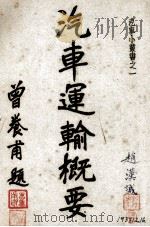 小叢書之一
汽車運輸概要
曾養甫題
趙漢